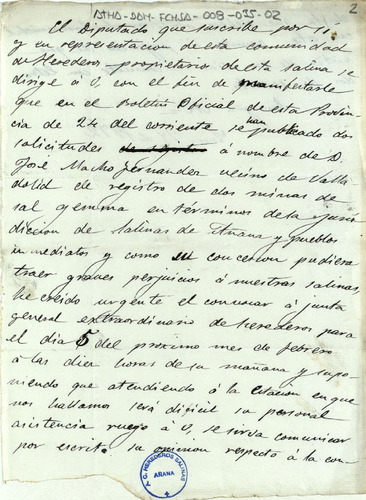 ATHA-DAH-FCHSA-008-035-02
2
El Diputado que suscribe por sí
y en representacion de esta comunidad
de Herederos propietarios de esta salina se
dirige á V. con el fin de manifestarle
que en el Boletin Oficial de esta Provin
cia de 24 del corriente se han publicado dos
solicitudes á nombre de D.
José Macho fernandez vecino de Valla
dolid de registro de dos minas de
sal gemma en términos de la juris
diccion de Salinas de Añana y pueblos
inmediatos y como su concesion pudiera
traer graves perjuicios á nuestras salinas,
he creido urgente el convocar á junta
general extraordinaria de herederos para
el dia 5 del proximo mes de febrero
á las diez horas de su mañana y supo
niendo que atendiendo á la estacion en que
nos hallamos será dificil su personal
asistencia ruego á V. se sirva comunicar
por escrito su opinion respecto á la con-
P. G. HEREDEROS SALINAS
AÑANA